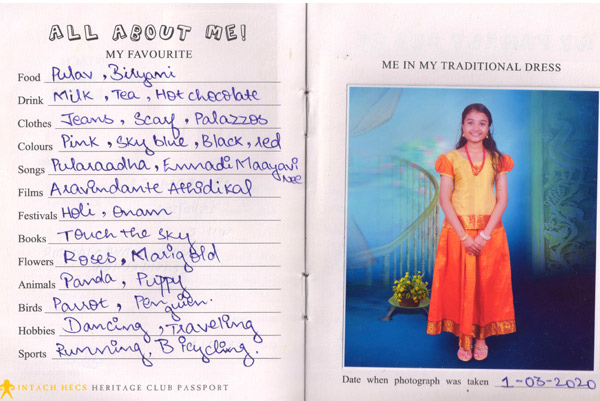 ALL ABOUT ME!
MY FAVOURITE
Food Pulav, Biryani
Drink Milk, Tea, Hot chocolate
Clothes Jeans, Scarf, Palazzos
Colours Pink, Sky blue, Black, red
Songs Pularaadha, Ennadi Maayavi Nee
Films Aravindante Athidikal
Festivals Holi, Onam
Books Touch the sky
Flowers Roses, Marigold
Animals Panda, Puppy
Birds Parrot, Penguien.
Hobbies Dancing, Traveling
Sports Running, Bicycling.
INTACH HECS HERITAGE CLUB PASSPORT
ME IN MY TRADITIONAL DRESS
Date when photograph was taken 1-03-2020